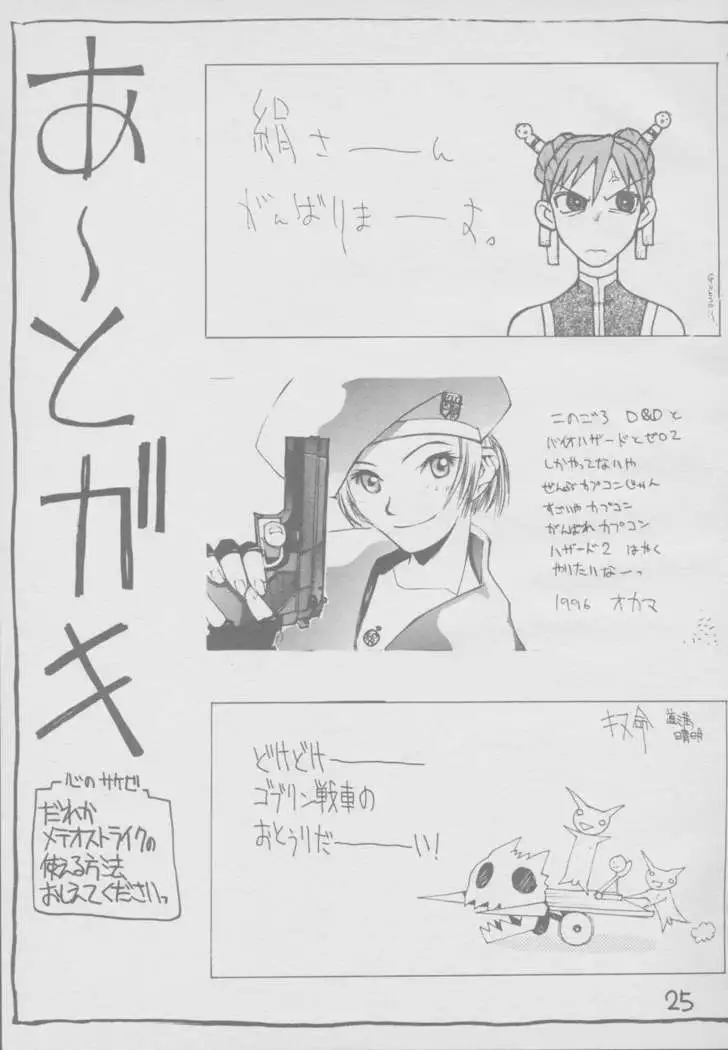 あ～とがキ
絹さーーん
がんばりまーーす。
このごろ D&Dと
バイオハザードとゼロ2
しかやってないや
ぜんぶカプコンじゃん
すごいやカプコン
がんばれカプコン
ハザード2 はやく
やりたいなーっ
1996 オカマ
晴明
どけどけーーー
ゴブリン戦車の
おとうりだーーい!
心のサケビ
だれか
メテオストライクの
使える方法
おしえてくださいっ
25